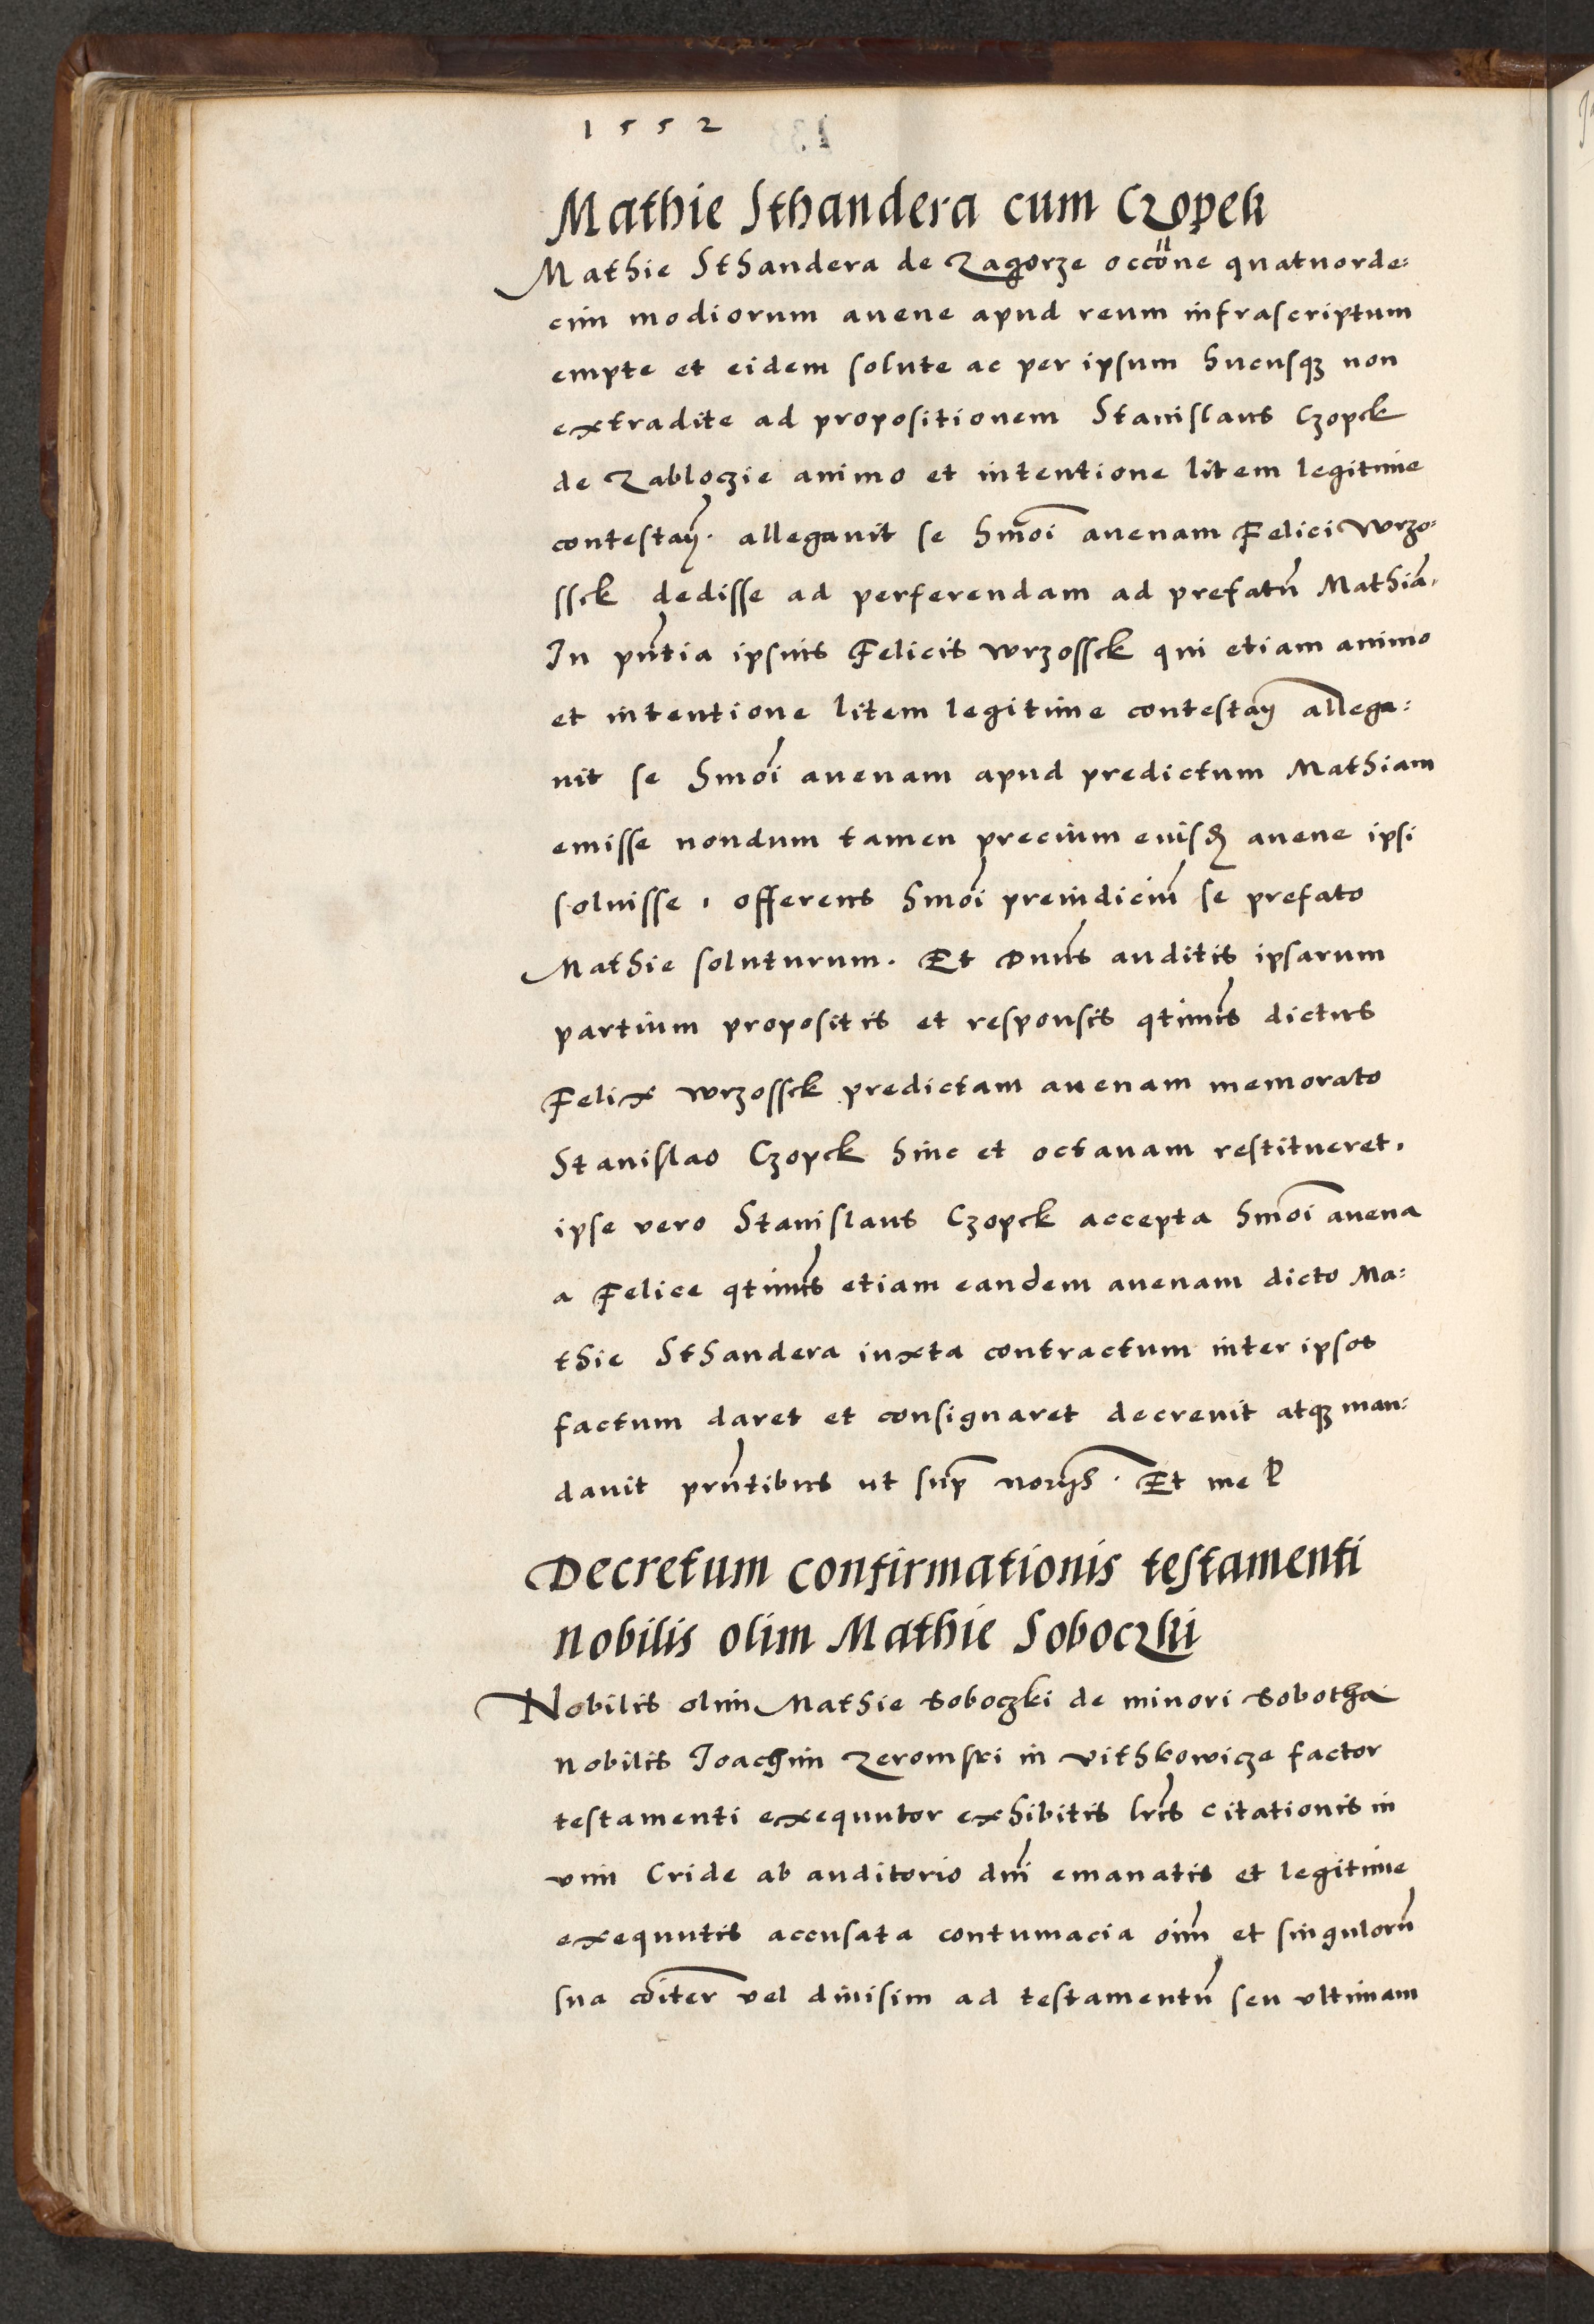 1552
Mathie Sthandera cum Czopek
Mathie Sthandera de Zagorze occõne quatuorde=
cim modiorum auene apud reum infrascriptum
empte et eidem solute ac per ipsum hucusqȝ non
extradite ad propositionem Stanislaus Czopek
de Zabloczie animo et intentione litem legitime
contestañ. allegauit se hmõi auenam Felici Wrzo=
ssek dedisse ad perferendam ad prefatũ Mathiã.
In pñtia ipsius Felicis Wrzossek qui etiam animo
et intentione litem legitime contestañ allega=
uit se hmõi auenam apud predictum Mathiam
emisse nondum tamen precium euisdꝫ auene ipsi
soluisse, offerens hmõi preiudiciũ se prefato
Mathie soluturum. Et Dñus auditis ipsarum
partium propositis et responsis qtinus dictus
Felix Wrzossek predictam auenam memorato
Stanislao Czopek hinc et octauam restitueret.
ipse vero Stanislaus Czopek accepta hmõi auena
a Felice qtinus etiam eandem auenam dicto Ma=
thie Sthandera iuxta contractum inter ipsos
factum daret et consignaret decreuit atqȝ man=
dauit pñtibus ut sup̃ norijs. Et me P
Decretum confirmationis testamenti
nobilis olim Mathie Soboczki
Nobilis olim Mathie Soboczki de minori Sobotha
nobilis Joachim Zeromski in Vithkowicze factor
testamenti exequutor exhibitis lr̃is citationis in
vim Cride ab auditorio dñi emanatis et legitime
exequutis accusata contumacia oĩm et singulorũ
sua cõiter vel diuisim ad testamentũ seu vltimam